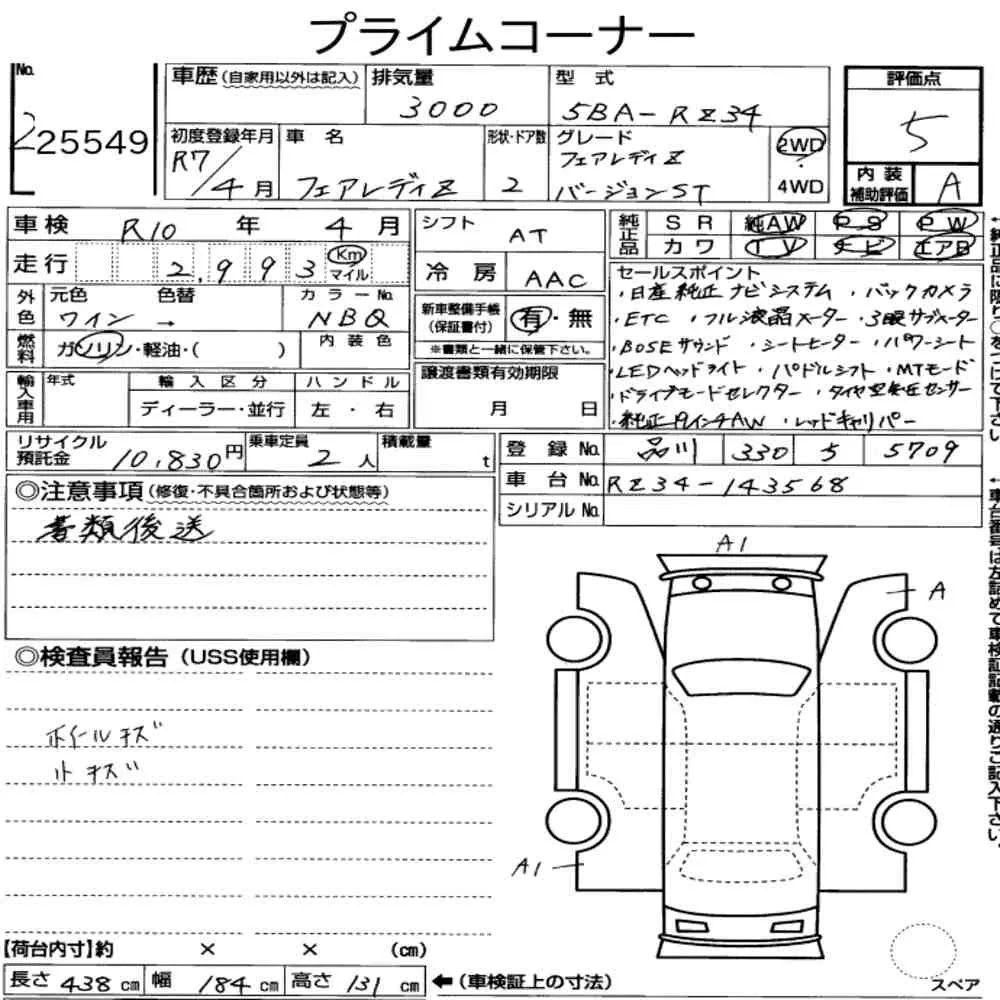 プライムコーナー
No.
225549
車歴(自家用以外は記入)
排気量
3000
型 式
5BA-RZ34
評価点
5
初度登録年月
R7/4月
車 名
フェアレディZ
形状・ドア数
2
グレード
フェアレディZ
バージョンST
2WD
・
4WD
内装
補助評価
A
車検 R10 年 4 月
シフト
AT
純正品
SR 純AW PS PW
カワ TV ナビ エアB
走行 2,993 Km
マイル
冷房 AAC
外色
元色 色替
ワイン →
カラーNo.
NBQ
新車整備手帳
(保証書付)
有・無
※書類と一緒に保管下さい。
セールスポイント
・日産純正ナビシステム ・バックカメラ
・ETC ・フル液晶メーター ・3眼サブメーター
・BOSEサウンド ・シートヒーター ・パワーシート
・LEDヘッドライト ・パドルシフト ・MTモード
・ドライブモードセレクター ・タイヤ空気圧センサー
・純正19インチAW ・レッドキャリパー
燃料
ガソリン・軽油・( )
内装色
輸入車用
年式
輸入区分
ディーラー・並行
ハンドル
左・右
譲渡書類有効期限
月 日
リサイクル
預託金 10,830円
乗車定員
2人
積載量
t
登録No. 品川 330 5 5709
車台No. RZ34-143568
シリアルNo.
◎注意事項(修復・不具合箇所および状態等)
書類後送
◎検査員報告(USS使用欄)
ホイールキズ
小キズ
A1
A
A1
【荷台内寸】約 × × (cm)
長さ 438 cm 幅 184 cm 高さ 131 cm
←(車検証上の寸法)
スペア
←純正品に限り○をつけて下さい。
←車台番号は左詰めで車検証記載の通りご記入下さい。